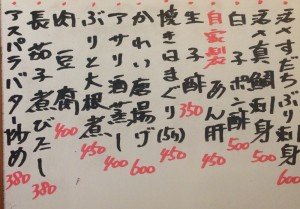 活〆すだちぶり刺身 500
活〆真鯛刺身 500
白子ポン酢 500
自家製 あん肝 450
生子酢 350
焼きはまぐり(5ヶ) 450
かれい唐揚げ 600
アサリ酒蒸し 400
ぶりと大根煮 450
肉豆腐 400
長茄子煮びたし 380
アスパラバター炒め 380